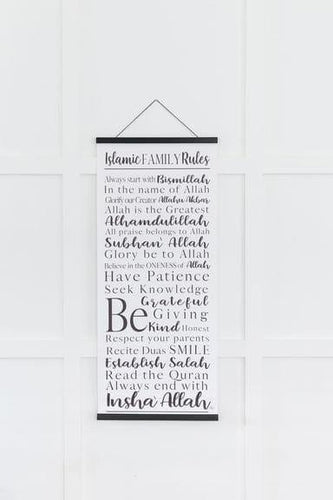 Islamic FAMILY Rules
Always start with Bismillah
In the name of Allah
Glorify our Creator Allahu Akbar
Allah is the Greatest
Alhamdulillah
All praise belongs to Allah
Subhan' Allah
Glory be to Allah
Believe in the ONENESS of Allah
Have Patience
Seek Knowledge
Be Grateful
Giving
Kind Honest
Respect your parents
Recite Duas SMILE
Establish Salah
Read the Quran
Always end with
Insha'Allah